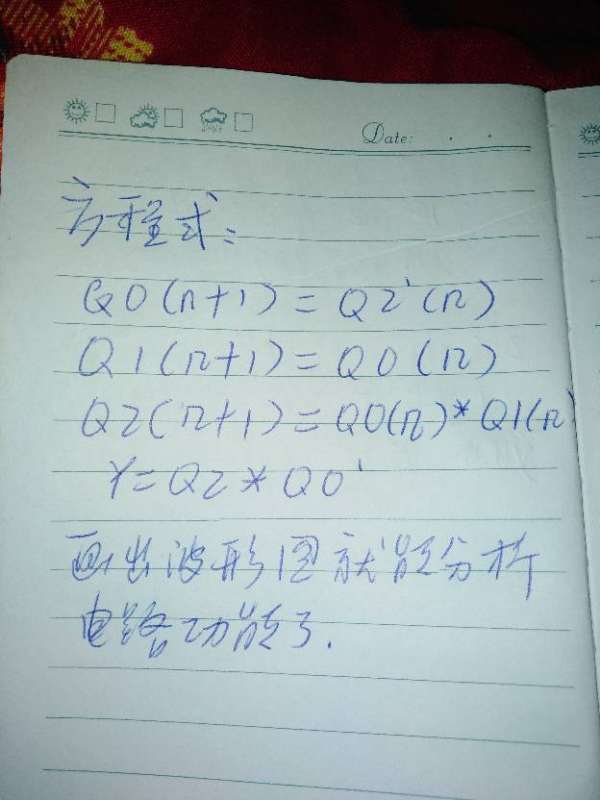 Date:
方程式:
Q0(n+1)=Q2'(n)
Q1(n+1)=Q0(n)
Q2(n+1)=Q0(n)*Q1(n)
Y=Q2*Q0'
画出波形图就能分析
电路功能了.